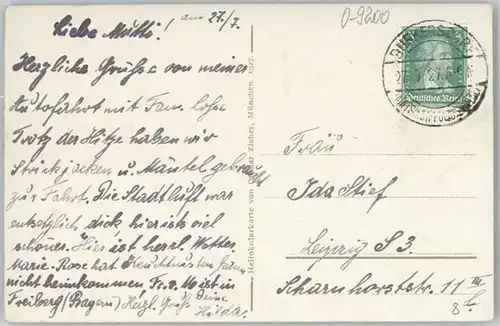 am 27./7.
Liebe Mutti!
Herzliche Grüße von meiner
Autofahrt mit Fam.
Trotz der Hitze haben wir
Strickjacken u. Mäntel gebraucht
zur Fahrt. Die Stadtluft war
entsetzlich dick, hier ist es viel
schöner. Hier ist herrl. Wetter.
Marie-Rose hat Keuchhusten
nicht
Freiberg (Bayern) Herzl. Gruß Deine
Hilda.
Heliokolorkarte von Ottmar Zieher, München (1927)
0-9200
Deutsches Reich
Frau
Ida Stief
Leipzig S 3.
Scharnhorststr. 11 III